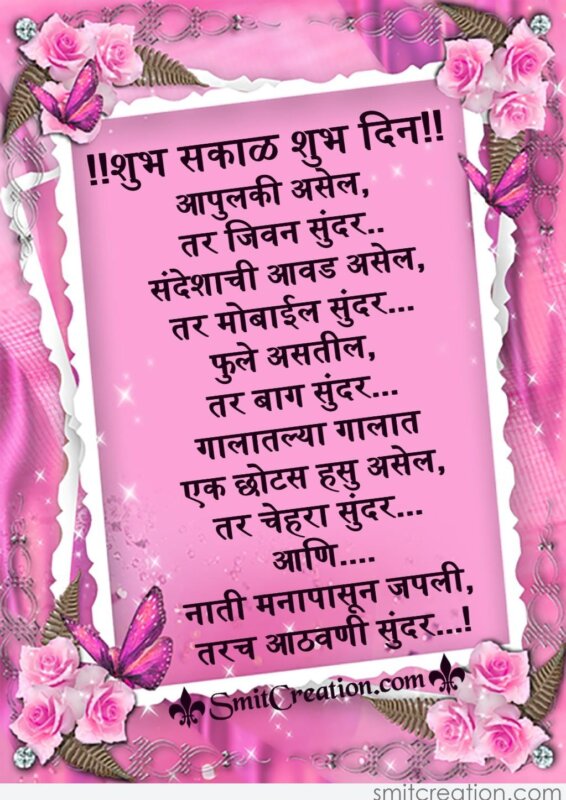 !!शुभ सकाळ शुभ दिन!!
आपुलकी असेल,
तर जिवन सुंदर..
संदेशाची आवड असेल,
तर मोबाईल सुंदर...
फुले असतील,
तर बाग सुंदर...
गालातल्या गालात
एक छोटस हसु असेल,
तर चेहरा सुंदर...
आणि....
नाती मनापासून जपली,
तरच आठवणी सुंदर...!
SmitCreation.com
smitcreation.com